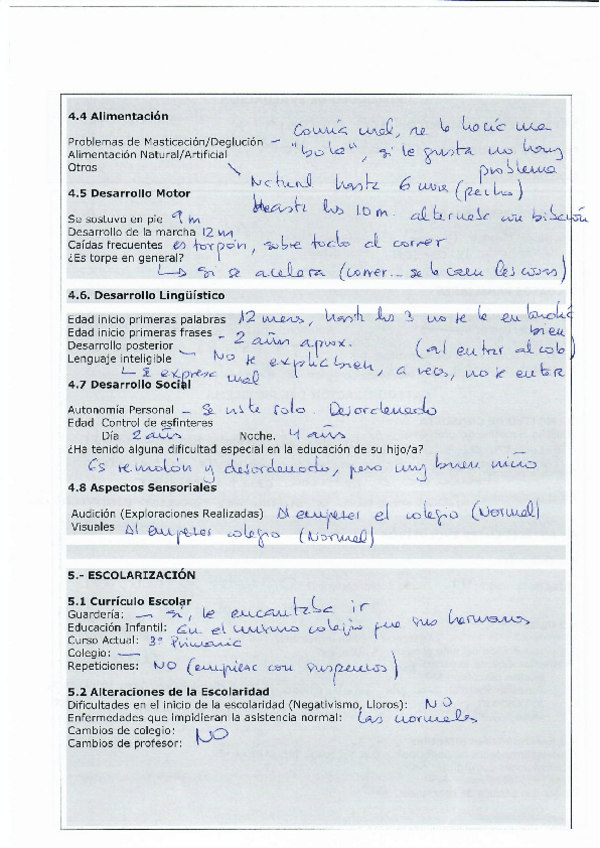 4.4 Alimentación
Comía mal, se le hacía una
Problemas de Masticación/Deglución – "bola", si le gusta no hay
Alimentación Natural/Artificial problema
Otros
Natural hasta 6 meses (pecho)
4.5 Desarrollo Motor
Hasta los 10 m. alternaba con biberón
Se sostuvo en pie 9 m
Desarrollo de la marcha 12 m
Caídas frecuentes es torpón, sobre todo al correr
¿Es torpe en general?
↳ si se acelera (correr... se le caen las cosas)
4.6. Desarrollo Lingüístico
Edad inicio primeras palabras 12 meses, hasta los 3 no se le entendía
bien
Edad inicio primeras frases - 2 años aprox. (al entrar al cole)
Desarrollo posterior
Lenguaje inteligible – No se explica bien, a veces, no se entera
↳ Se expresa mal
4.7 Desarrollo Social
Autonomía Personal – Se viste solo. Desordenado
Edad Control de esfínteres
Día 2 años Noche. 4 años
¿Ha tenido alguna dificultad especial en la educación de su hijo/a?
Es remolón y desordenado, pero muy buen niño
4.8 Aspectos Sensoriales
Audición (Exploraciones Realizadas) Al empezar el colegio (Normal)
Visuales Al empezar colegio (Normal)
5.- ESCOLARIZACIÓN
5.1 Currículo Escolar
Guardería: – si, le encantaba ir
Educación Infantil: En el mismo colegio que sus hermanos
Curso Actual: 3º Primaria
Colegio: —
Repeticiones: NO (empieza con suspensos)
5.2 Alteraciones de la Escolaridad
Dificultades en el inicio de la escolaridad (Negativismo, Lloros): NO
Enfermedades que impidieran la asistencia normal: las normales
Cambios de colegio: NO
Cambios de profesor: